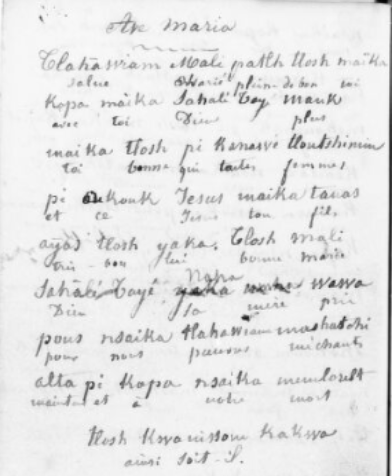 Ave Maria
Tlahawiam Mali patlh tlosh maika
salue Marie plein-de bon toi
Kopa maika Sahali Tayé mauk
avec toi Dieu plus
maika tlosh pi kanawé tloutshimin
toi bonne que toutes femmes
pi oukouk Jesus maika tanas
et ce Jesus ton fils
ayas tlosh yaka. Tlosh Mali
très-bon lui bonne Marie
Napa
Sahali Tayé wawa
Dieu sa mère prie
pous nsaika tlahawiam mashatshi
pour nous pauvres méchants
alta pi kopa nsaika memloust
mainte. et à notre mort
tlosh kwanissom kakwa
ainsi soit-il.